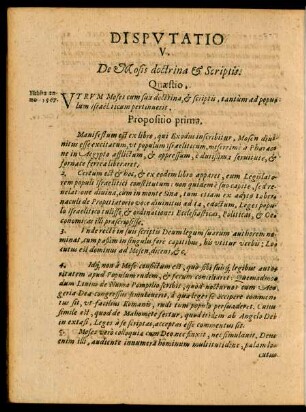 DISPVTATIO
V.
De Mosis doctrina & Scriptis:
Quæstio,
VTRVM Moses cum sua doctrina, & scriptis, tantùm ad popu
lum israeliticum pertinuerit.
Propositio prima,
Manifestum est ex libro, qui Exodus inscribitur, Mosen diui
nitus esse excitatum, vt populum israeliticum, miserrimè à Pharao
ne in Aegypto afflictum, & oppressum, è durissima seruitute, &
fornace ferrea liberaret.
2. Certum est & hoc, & ex eodem libro apparet, eum Legislato
rem populi israelitici constitutum: non quidem suo capite, sed re
uelatione diuina, cum in monte Sina, cum etiam ex adito Taberna
culi de Propitiatorio voce diuinitus ad se, edoctum, Leges popu
lo israelitico tulisse, & ordinationes Ecclesiasticas, Politicas, & Oe
conomicas illi præscripsisse.
3. Vnde recto in suis scriptis Deum legum suarum authorem no
minat, cum passim in singulis ferè capitibus, his vtitur verbis: Lo
cutus est dominus ad Mosen, dicens, &c.
4. Idq́; non à Mose confictum est, quò scilicet suis legibus auto
ritatem apud Populum
dum Lenino de Numa Pompilio scribit, quòd nocturnos cum Aeu
geria Dea congressus simulauerit, à qua leges se accipere commentus
sit, vt facilius Romanis, rudi tum populo persuaderet. Cui
simile est, quod de Mahomete fertur, quod eidem ab Angelo Dei
in extasi, Leges à se scriptas, acceptas esse commentus sit.
5. Moses verò colloquia cum Deo nec finxit, nec simulauit, Deus
enim illi, audiente innumera hominum multitudine, palam lo-
cutus